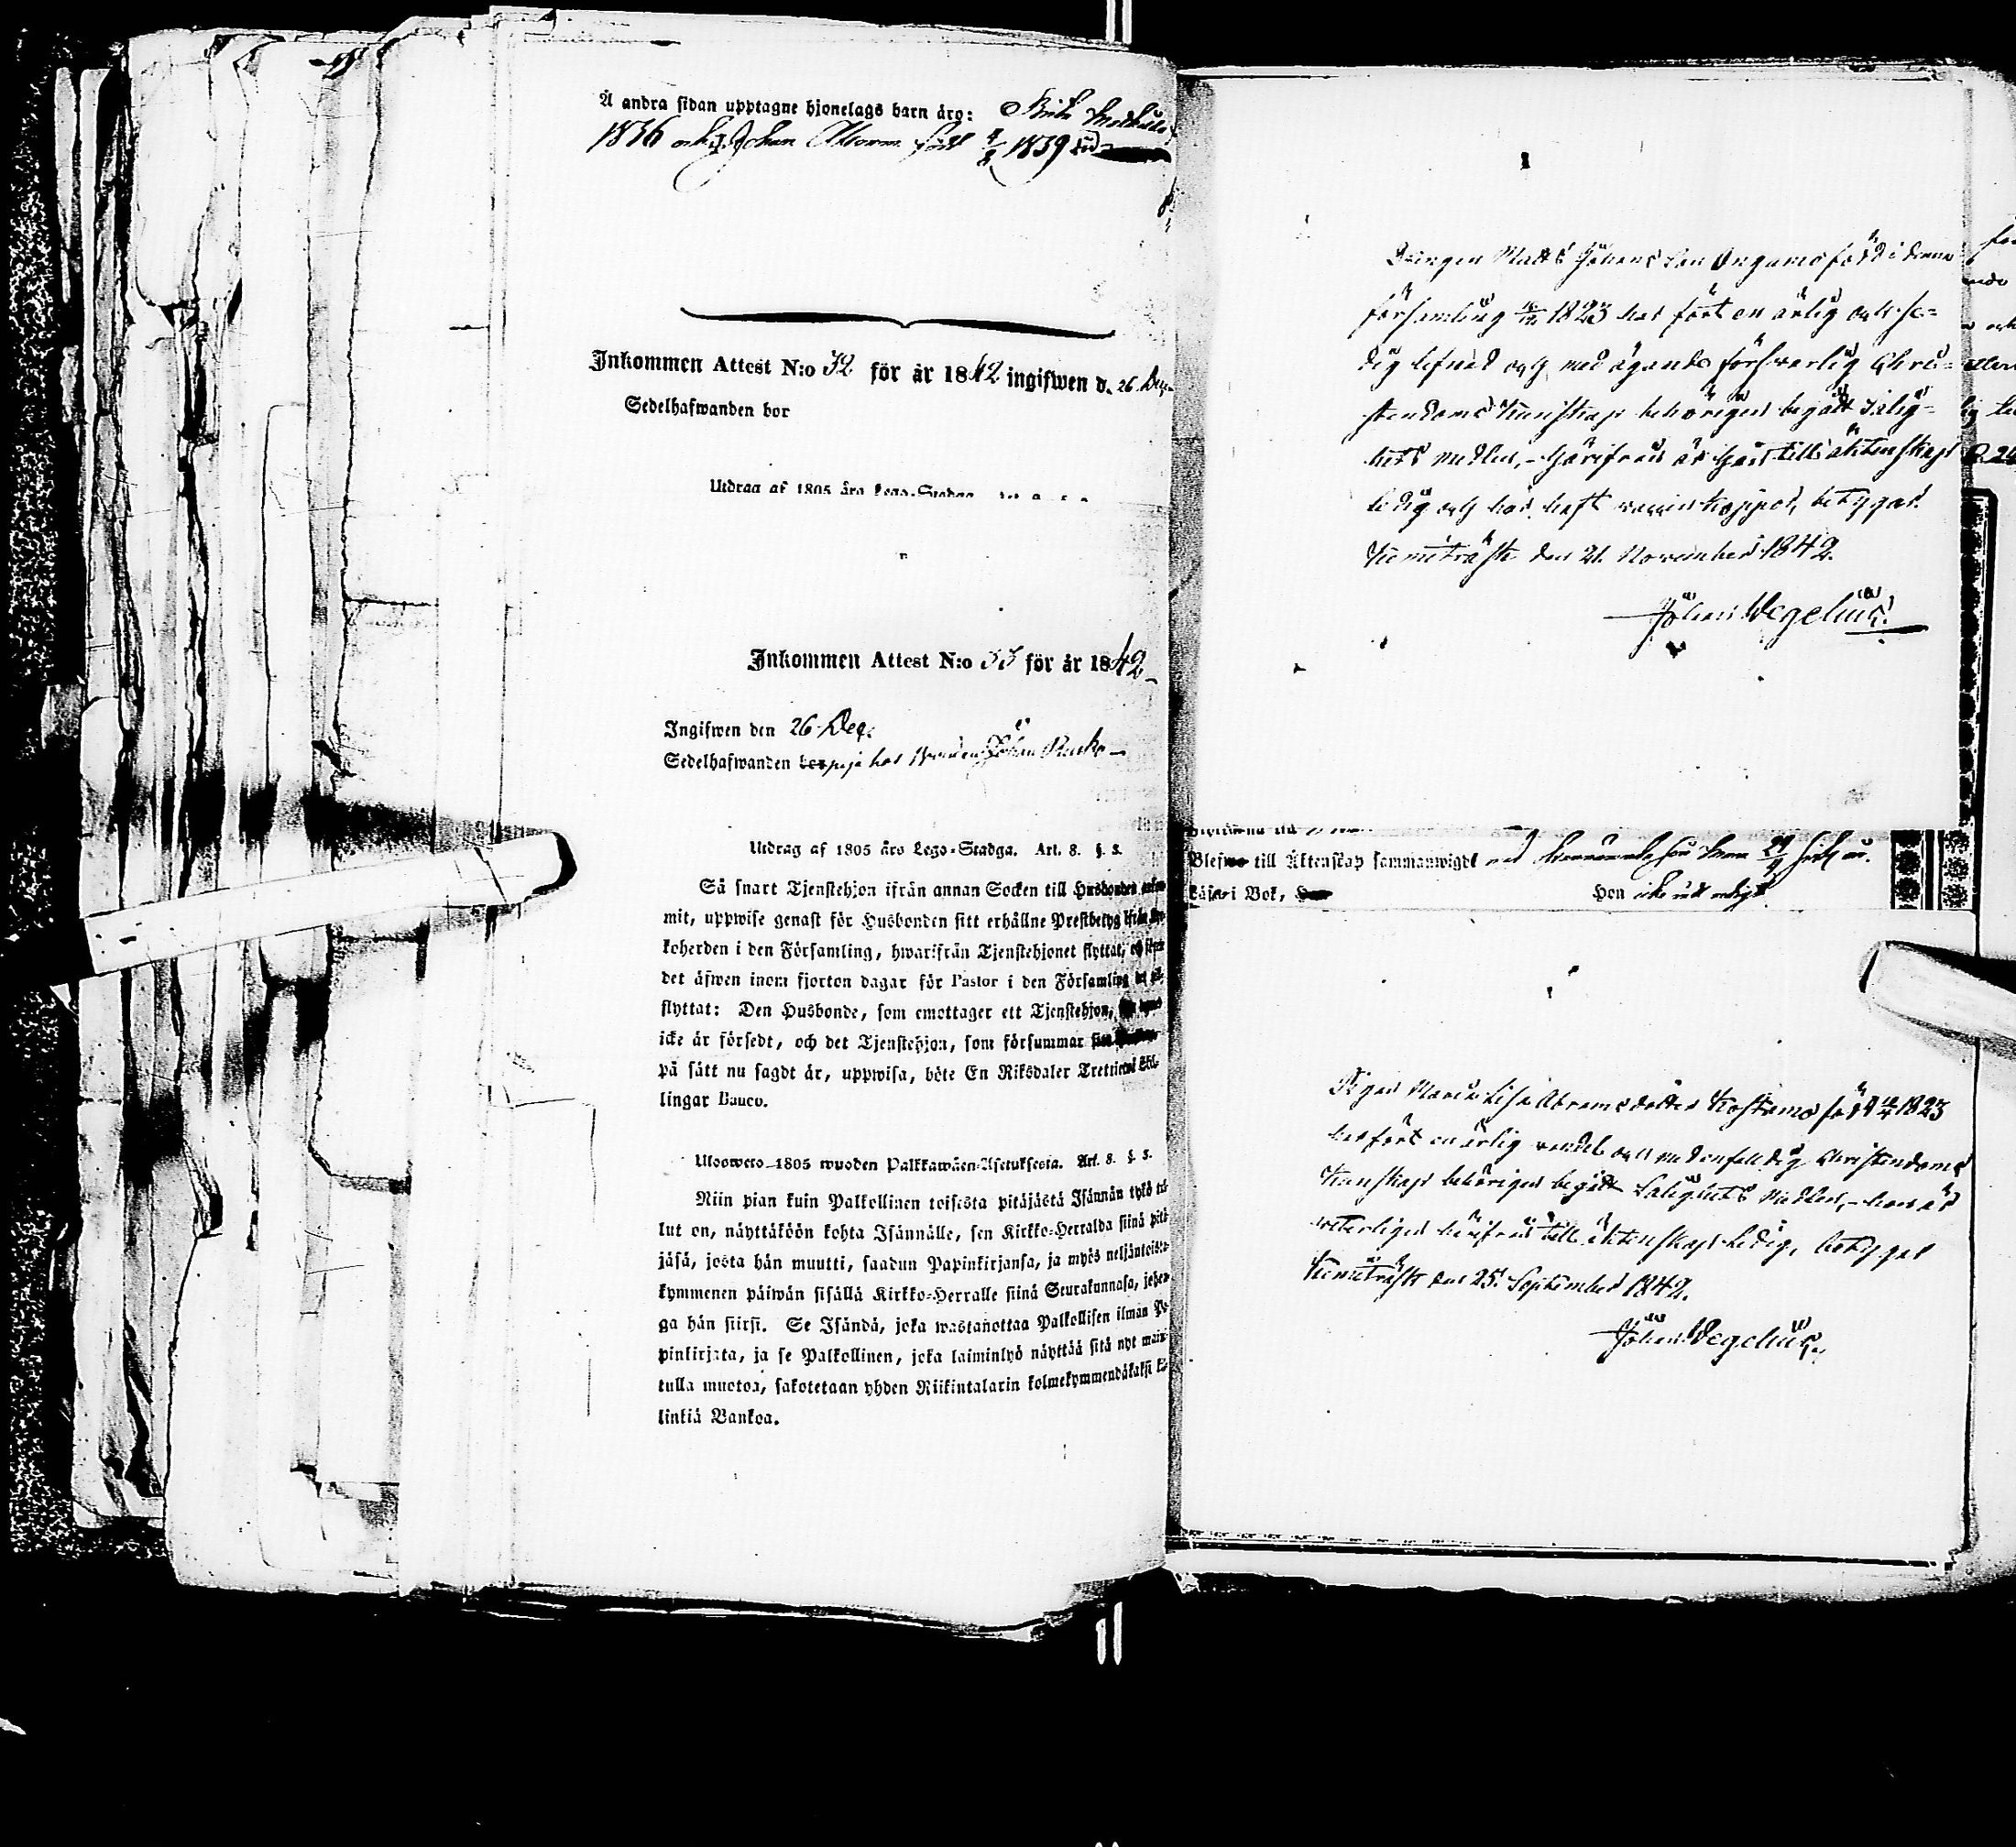 Å andra sidan upptagne hjonelags barn äro: Brita
1836 och Johan Abram född 4/8 1839
Inkommen Attest N:o 32 för år 1842 ingifwen d. 26 Dec.
Sedelhafwanden bor
Utdrag af 1805 års Lego-Stadga.
Inkommen Attest N:o 33 för år 1842
Ingifwen den 26 Dec.
Sedelhafwanden bor piga hos Bonden Johan
Utdrag af 1805 års Lego-Stadga. Art. 8. §. 3.
Så snart Tjenstehjon ifrån annan Socken till Husbonden
mit, uppwise genast för Husbonden sitt erhållne Prestbetyg ifrån
koherden i den Församling, hwarifrån Tjenstehjonet flyttat, och
det äfwen inom fjorton dagar för Pastor i den Församling
flyttat: Den Husbonde, som emottager ett Tjenstehjon,
icke är försedt, och det Tjenstehjon, som försummar
på sätt nu sagdt är, uppwisa, böte En Riksdaler Trettiotwå Skil-
lingar Banco.
Ulosweto 1805 wuoden Palkkawäen-Asetuksesta. Art. 8. §. 3.
Niin pian kuin Palkollinen toisesta pitäjästä Isännän tykö tul-
lut on, näyttäköön kohta Isännälle, sen Kirkko-Herralda siinä pitä-
jäsä, josta hän muutti, saadun Papinkirjansa, ja myös neljäntoista-
kymmenen päiwän sisällä Kirkko-Herralle siinä Seurakunnasa, johon-
ga hän siirsi. Se Isändä, joka wastanottaa Palkollisen ilman Pa-
pinkirjata, ja se Palkollinen, joka laiminlyö näyttää sitä nyt main-
tulla muotoa, sakotetaan yhden Riikintalarin kolmekymmendäkaksi kil-
linkiä Bankoa.
Drengen Matts Johans Son Ongamo född i denna
församling 1823 har fört en ärlig och se-
dig lefnad och med ägande försvarlig Chri-
stendoms Kunskap behörigen begått Salig-
hets medlen, – härifrån är han till äktenskap
ledig och har haft vaccinkoppor, betygar
Kemiträsk den 21. November 1842.
Johan Wegelius.
Blefwo till Äktenskap sammanwigde
Läser i Bok, Hon icke
Pigan Maria Lisa Abramsdotter Kostamo född 1823
har fört en ärlig vandel och med enfaldig Christendoms
Kunskap behörigen begått Salighets Medlen, – hon är
veterligen härifrån till äktenskap ledig, betygar
Kemiträsk den 25. September 1842.
Johan Wegelius.